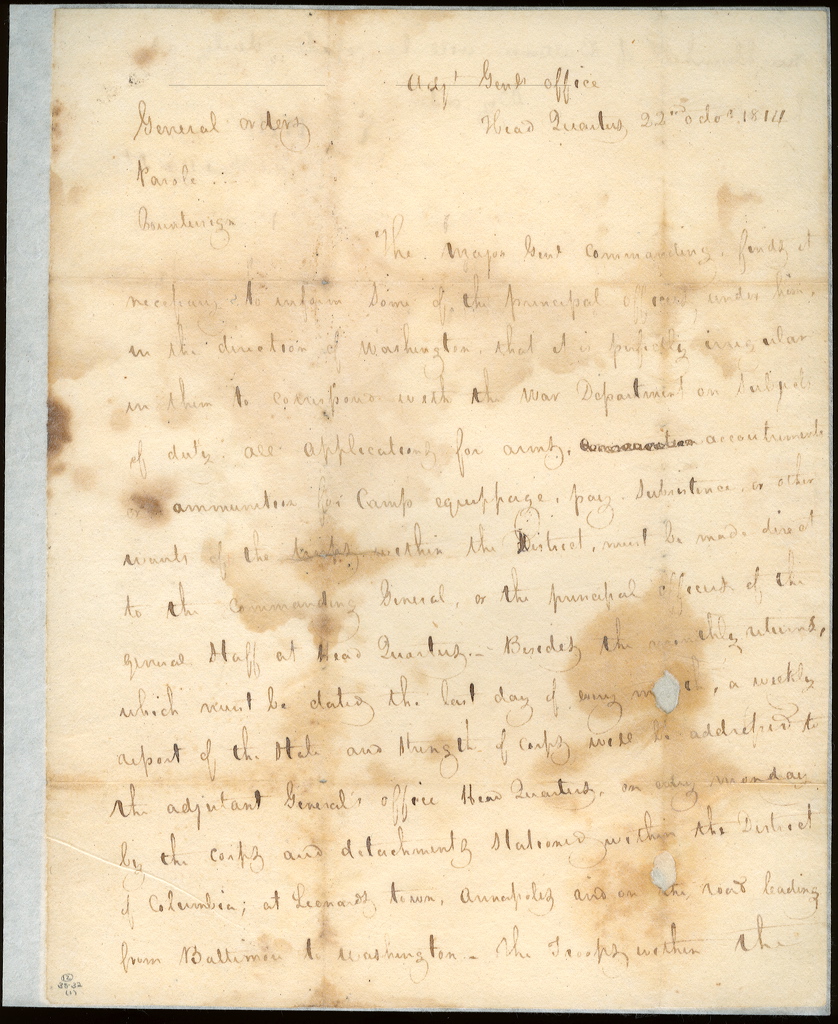 Adjt Genls office
General orders
Head Quarters 22nd octor. 1814
Parole ...
Countersign
The Major Genl Commanding, finds it
necessary to inform Some of the principal officers under him,
in the direction of Washington, that it is perfectly irregular
in them to correspond with the War Department on Subjects
of duty. all applications for arms, accoutrements
or ammunition for Camp equippage, pay. Subsistence, or other
wants of the troops within the District, must be made direct
to the Commanding General, or the principal officers of the
general Staff at Head Quarters.- Besides the monthly returns,
which must be dated the last day of every m th, a weekly
report of the State and Strength of corps will be addressed to
the adjutant General's office Head Quarters, on every monday
by the corps and detachments Stationed within the District
of Columbia; at Leonards town, annapolis and on the road leading
from Baltimore to Washington.- The Troops within the